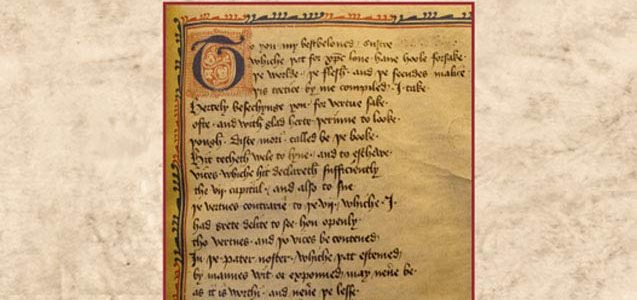 To you my best beloued sustre
whiche þat for xpes loue haue hoole forsake
þe worlde þe flesh and þe feendes malice
þis tretice by me compiled I take
Hertely besechynge you for vertue sake
ofte and with glad herte per in to looke
þough Diste mori called be þe booke
Hit techeth wele to lyue and to escheue
vices whiche hit declareth sufficiently
the vij capital and also to sue
þe vertues contrarie to þe vij whiche I
had grete delite to see hou openly
tho vertues and þo vices be contened
In þe pater noster whiche þat estemed
by mannes wit or expouned may neuer be
as it is worthi and neuer þe lesse